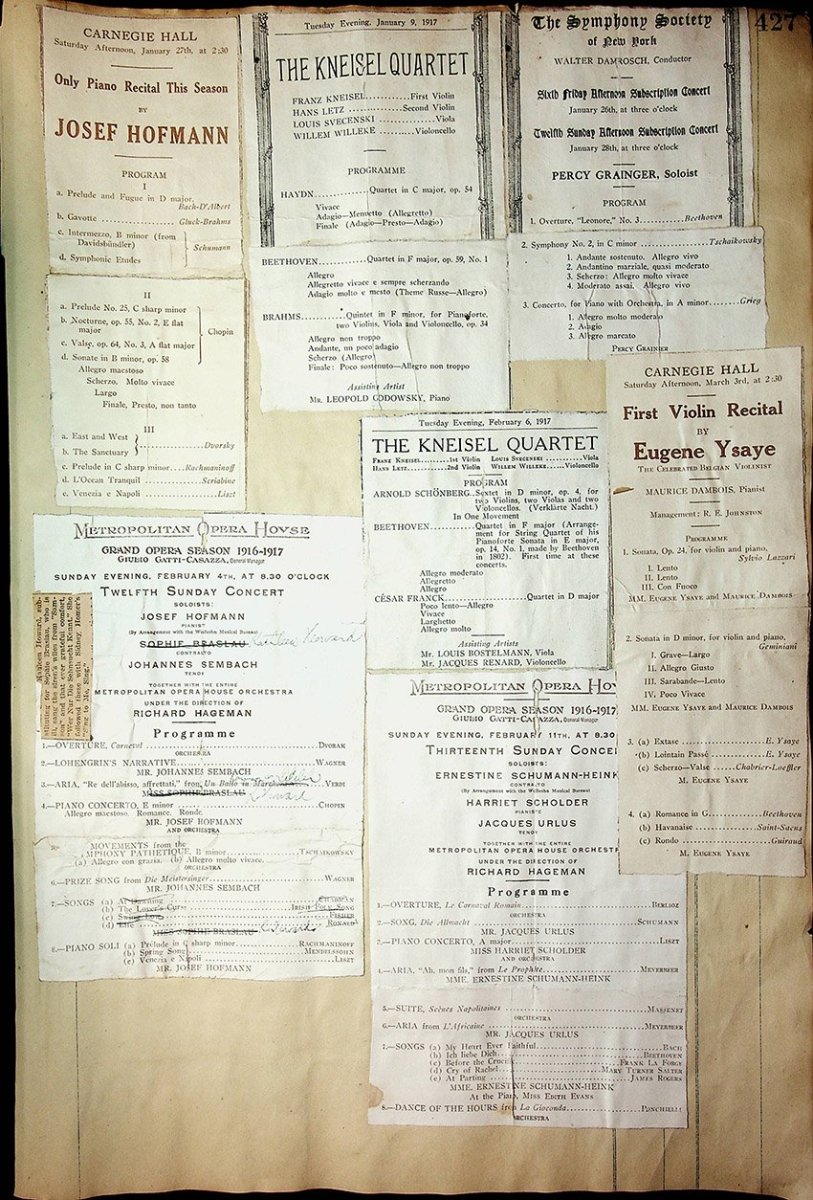 427
CARNEGIE HALL
Saturday Afternoon, January 27th, at 2:30
Only Piano Recital This Season
BY
JOSEF HOFMANN
PROGRAM
I
a. Prelude and Fugue in D major,
Bach-D'Albert
b. Gavotte Gluck-Brahms
c. Intermezzo, B minor (from
Davidsbündler)
d. Symphonic Etudes
Schumann
II
a. Prelude No. 25, C sharp minor
b. Nocturne, op. 55, No. 2, E flat
major
c. Valse, op. 64, No. 3, A flat major
d. Sonate in B minor, op. 58
Chopin
Allegro maestoso
Scherzo, Molto vivace
Largo
Finale, Presto, non tanto
III
a. East and West
b. The Sanctuary
Dvorsky
c. Prelude in C sharp minor....Rachmaninoff
d. L'Ocean Tranquil Scriabine
e. Venezia e Napoli Liszt
Tuesday Evening, January 9, 1917
THE KNEISEL QUARTET
FRANZ KNEISEL............First Violin
HANS LETZ............Second Violin
LOUIS SVECENSKI............Viola
WILLEM WILLEKE............Violoncello
PROGRAMME
HAYDN............Quartet in C major, op. 54
Vivace
Adagio—Menuetto (Allegretto)
Finale (Adagio—Presto—Adagio)
BEETHOVEN............Quartet in F major, op. 59, No. 1
Allegro
Allegretto vivace e sempre scherzando
Adagio molto e mesto (Theme Russe—Allegro)
BRAHMS............Quintet in F minor, for Pianoforte,
two Violins, Viola and Violoncello, op. 34
Allegro non troppo
Andante, un poco adagio
Scherzo (Allegro)
Finale: Poco sostenuto—Allegro non troppo
Assisting Artist
Mr. LEOPOLD GODOWSKY, Piano
The Symphony Society
of New York
WALTER DAMROSCH, Conductor
Sixth Friday Afternoon Subscription Concert
January 26th, at three o'clock
Twelfth Sunday Afternoon Subscription Concert
January 28th, at three o'clock
PERCY GRAINGER, Soloist
PROGRAM
1. Overture, "Leonore," No. 3............Beethoven
2. Symphony No. 2, in C minor............Tschaikowsky
1. Andante sostenuto. Allegro vivo
2. Andantino marziale, quasi moderato
3. Scherzo: Allegro molto vivace
4. Moderato assai. Allegro vivo
3. Concerto, for Piano with Orchestra, in A minor............Grieg
1. Allegro molto moderato
2. Adagio
3. Allegro marcato
PERCY GRAINGER
CARNEGIE HALL
Saturday Afternoon, March 3rd, at 2:30
First Violin Recital
BY
Eugene Ysaye
THE CELEBRATED BELGIAN VIOLINIST
MAURICE DAMBOIS, Pianist
Management: R. E. JOHNSTON
PROGRAMME
1. Sonata, Op. 24, for violin and piano,
Sylvio Lazzari
I. Lento
II. Lento
III. Con Fuoco
MM. EUGENE YSAYE and MAURICE DAMBOIS
2. Sonata in D minor, for violin and piano,
Geminiani
I. Grave—Largo
II. Allegro Giusto
III. Sarabande—Lento
IV. Poco Vivace
MM. EUGENE YSAYE and MAURICE DAMBOIS
3. (a) Extase............E. Ysaye
(b) Lointain Passé............E. Ysaye
(c) Scherzo-Valse....Chabrier-Loeffler
M. EUGENE YSAYE
4. (a) Romance in G............Beethoven
(b) Havanaise............Saint-Saens
(c) Rondo............Guiraud
M. EUGENE YSAYE
Tuesday Evening, February 6, 1917
THE KNEISEL QUARTET
FRANZ KNEISEL........1st Violin LOUIS SVECENSKI........Viola
HANS LETZ........2nd Violin WILLEM WILLEKE......Violoncello
PROGRAM
ARNOLD SCHÖNBERG..Sextet in D minor, op. 4, for
two Violins, two Violas and two
Violoncellos. (Verklärte Nacht.)
In One Movement
BEETHOVEN............Quartet in F major (Arrange-
ment for String Quartet of his
Pianoforte Sonata in E major,
op. 14, No. 1, made by Beethoven
in 1802). First time at these
concerts.
Allegro moderato
Allegretto
Allegro
CÉSAR FRANCK............Quartet in D major
Poco lento—Allegro
Vivace
Larghetto
Allegro molto
Assisting Artists
Mr. LOUIS BOSTELMANN, Viola
Mr. JACQUES RENARD, Violoncello
METROPOLITAN OPERA HOVSE
GRAND OPERA SEASON 1916-1917
GIULIO GATTI-CASAZZA, General Manager
SUNDAY EVENING, FEBRUARY 4TH, AT 8.30 O'CLOCK
TWELFTH SUNDAY CONCERT
SOLOISTS:
JOSEF HOFMANN
PIANIST
(By Arrangement with the Wolfsohn Musical Bureau)
SOPHIE BRASLAU Kathleen Howard
CONTRALTO
JOHANNES SEMBACH
TENOR
TOGETHER WITH THE ENTIRE
METROPOLITAN OPERA HOUSE ORCHESTRA
UNDER THE DIRECTION OF
RICHARD HAGEMAN
Programme
1.—OVERTURE, Carneval............DVORAK
ORCHESTRA
2.—LOHENGRIN'S NARRATIVE............WAGNER
MR. JOHANNES SEMBACH
3.—ARIA, "Re dell'abisso, affrettati," from Un Ballo in Maschera....VERDI
MISS SOPHIE BRASLAU Howard
4.—PIANO CONCERTO, E minor............CHOPIN
Allegro maestoso, Romance, Rondo
MR. JOSEF HOFMANN
AND ORCHESTRA
MOVEMENTS from the
SYMPHONY PATHETIQUE, B minor............TSCHAIKOWSKY
(a) Allegro con grazia. (b) Allegro molto vivace.
ORCHESTRA
6.—PRIZE SONG from Die Meistersinger............WAGNER
MR. JOHANNES SEMBACH
7.—SONGS (a) At Dawning
(b) The Lover's Curse............IRISH FOLK SONG
(c) Swing Low............FISHER
(d) Life............RONALD
MISS SOPHIE BRASLAU
8.—PIANO SOLI (a) Prélude in C sharp minor............RACHMANINOFF
(b) Spring Song............MENDELSSOHN
(c) Venezia e Napoli............LISZT
MR. JOSEF HOFMANN
Kathleen Howard, sub-
stituting for Sophie Braslau, who is
ill, sang the siren's when from "Sam-
son" and that ever grateful comfort,
"Wer Nur Die Sehnsucht Kennt." She
followed these with Sidney Homer's
"Sing to Me, Sing."
METROPOLITAN OPERA HOV
GRAND OPERA SEASON 1916-1917
GIULIO GATTI-CASAZZA, General Manager
SUNDAY EVENING, FEBRUARY 11TH, AT 8.30
THIRTEENTH SUNDAY CONCE
SOLOISTS:
ERNESTINE SCHUMANN-HEINK
CONTRALTO
(By Arrangement with the Wolfsohn Musical Bureau)
HARRIET SCHOLDER
PIANISTE
JACQUES URLUS
TENOR
TOGETHER WITH THE ENTIRE
METROPOLITAN OPERA HOUSE ORCHESTR
UNDER THE DIRECTION OF
RICHARD HAGEMAN
Programme
1.—OVERTURE, Le Carnaval Romain............BERLIOZ
ORCHESTRA
2.—SONG, Die Allmacht............SCHUMANN
MR. JACQUES URLUS
3.—PIANO CONCERTO, A major............LISZT
MISS HARRIET SCHOLDER
AND ORCHESTRA
4.—ARIA, "Ah, mon fils," from Le Prophète............MEYERBEER
MME. ERNESTINE SCHUMANN-HEINK
5.—SUITE, Scènes Napolitaines............MASSENET
ORCHESTRA
6.—ARIA from L'Africaine............MEYERBEER
MR. JACQUES URLUS
7.—SONGS (a) My Heart Ever Faithful............BACH
(b) Ich liebe Dich............BEETHOVEN
(c) Before the Crucifix............FRANK LA FORGE
(d) Cry of Rachel............MARY TURNER SALTER
(e) At Parting............JAMES ROGERS
MME. ERNESTINE SCHUMANN-HEINK
At the Piano, MISS EDITH EVANS
8.—DANCE OF THE HOURS from La Gioconda............PONCHIELLI
ORCHESTRA